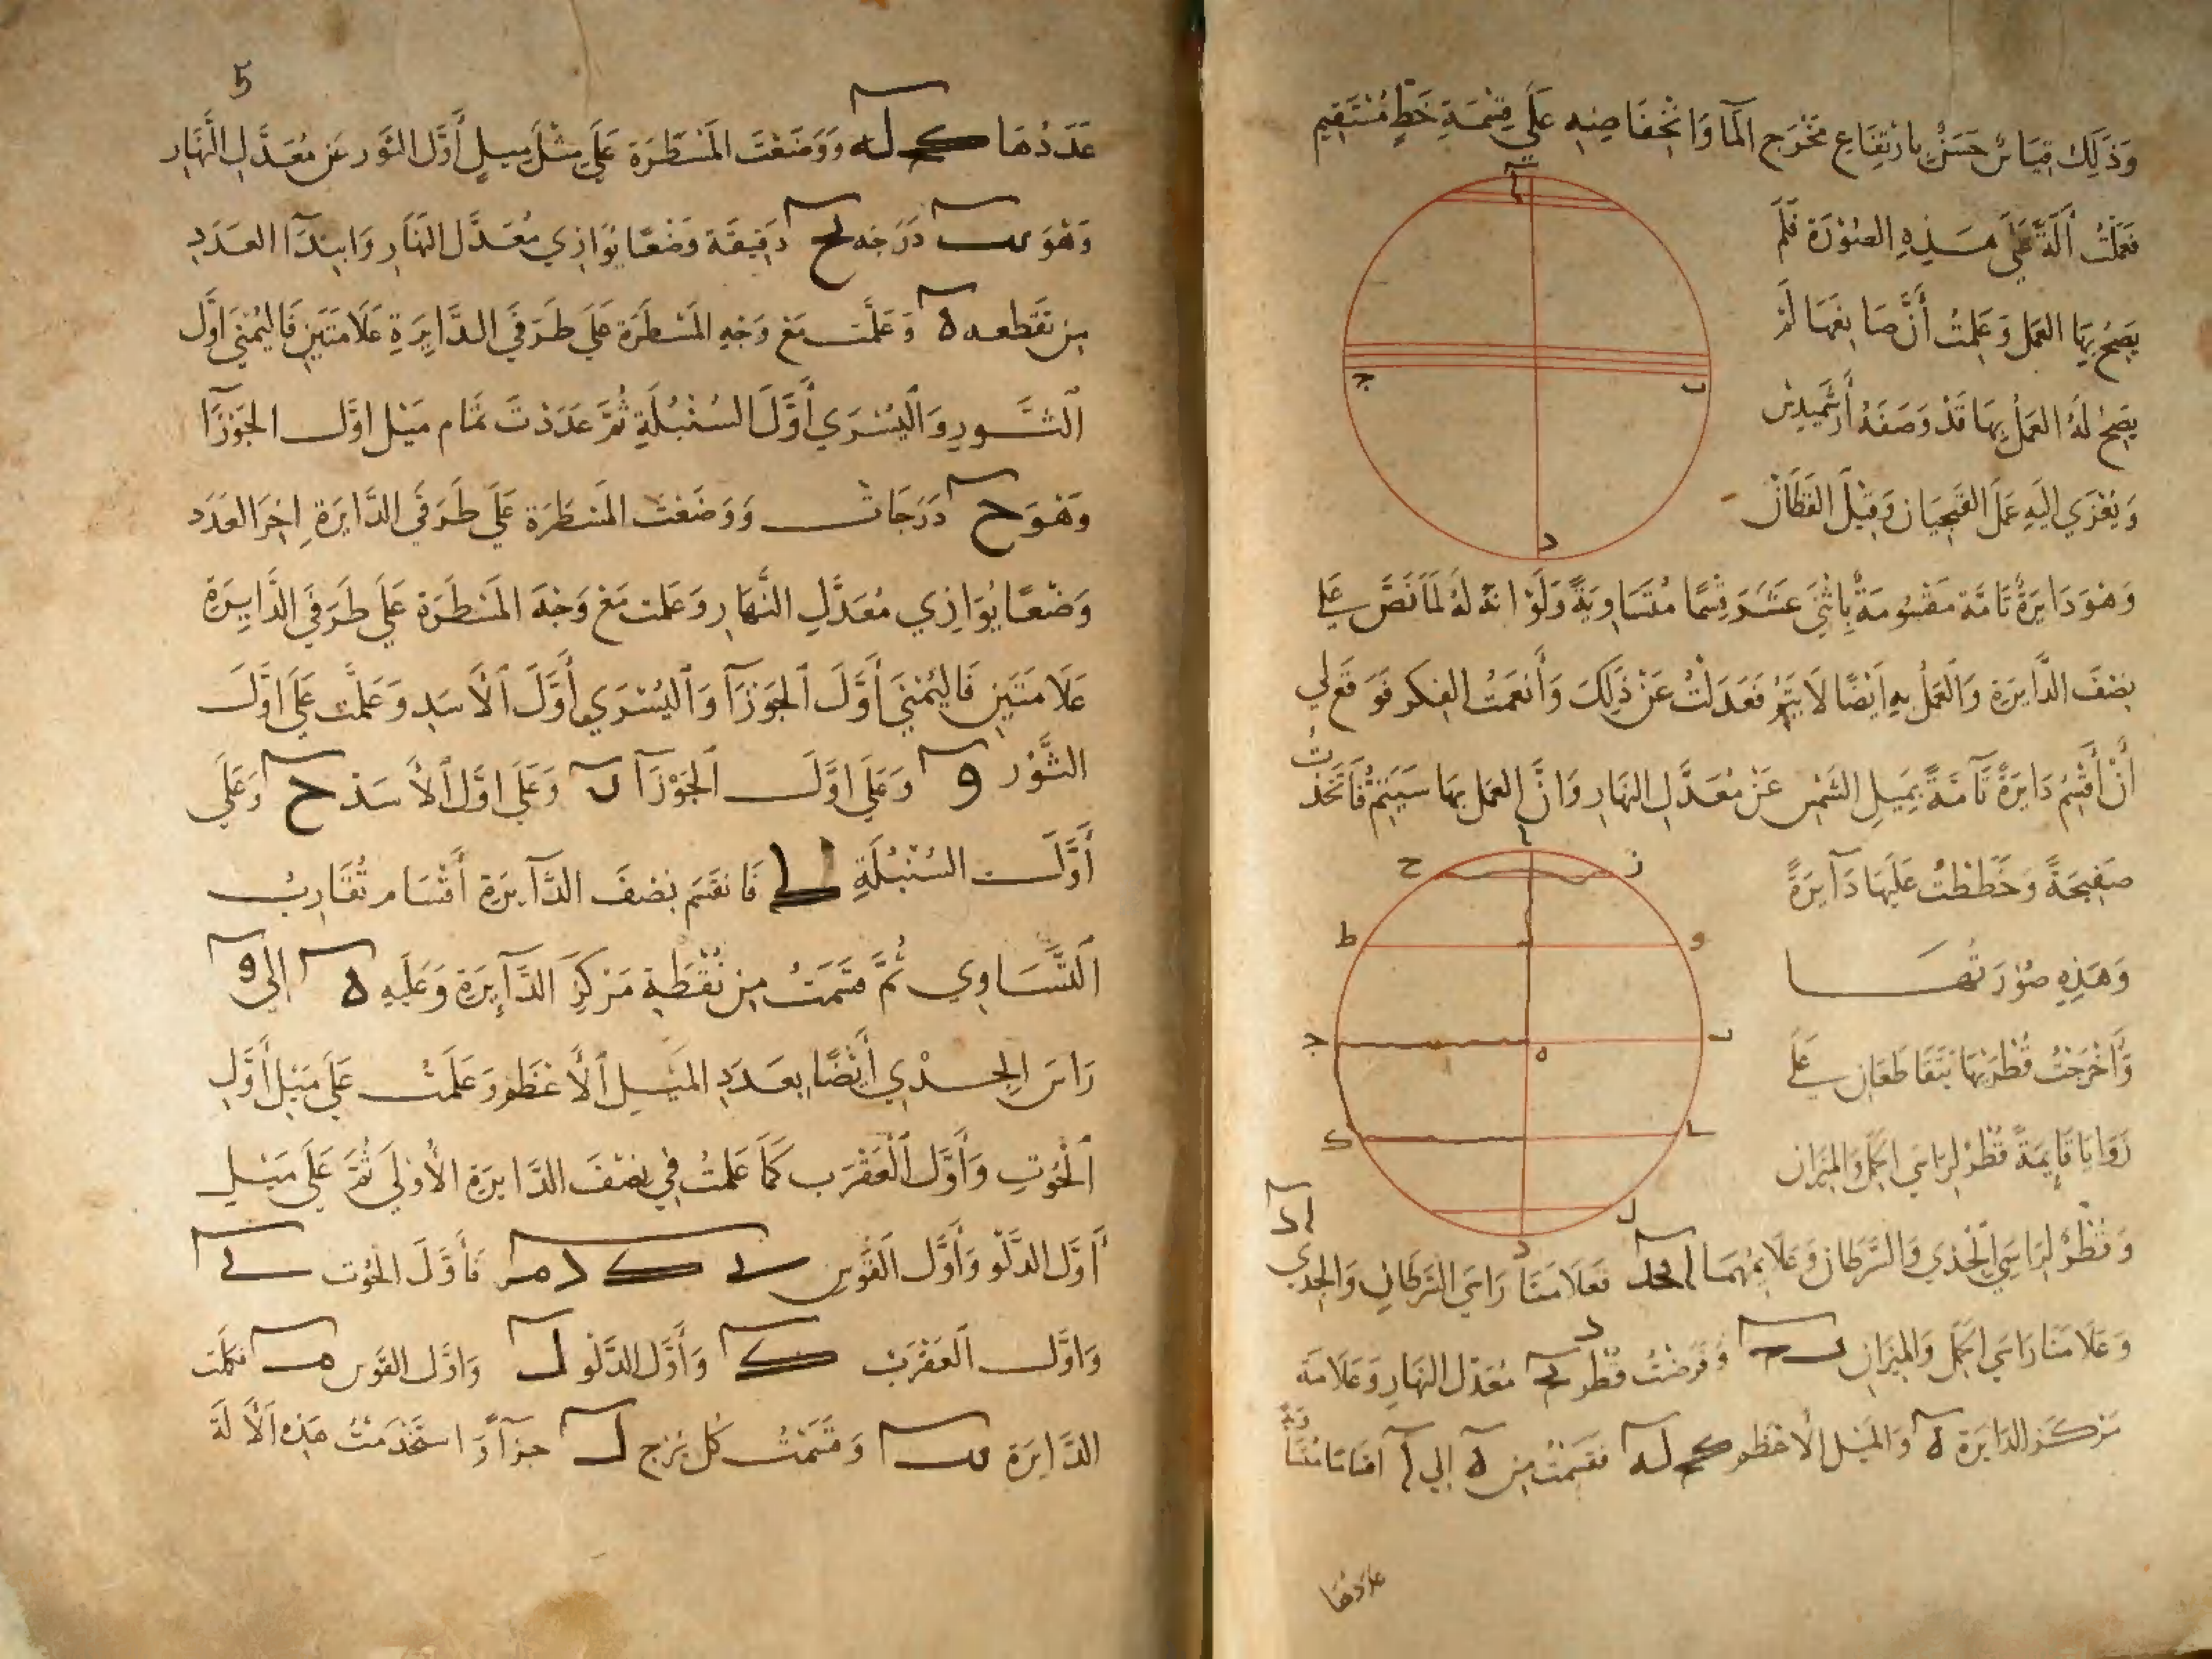 وَذَلِكَ قِيَاسٌ حَسَنٌ بارْتِفَاعِ مَخْرَجِ المَآ وَانْخِفَاضِهِ عَلَى قِسْمَةِ خَطٍّ مُسْتَقِيمٍ
آ
فعَمِلْتُ آلَةً عَلَى هَذِهِ الصُّوْرَةِ فَلَمْ
يَصِحُّ بِهَا العَمَل وَعَلِمْتُ أَنَّ صَانِعَهَا لَمْ
ب
ج
يَصِحُ لَهُ العَمَلُ بِهَا قَدْ وَصَفَهُ أَرشَمِيدِسْ
وَيُعْزَي إِلَيهِ عَمَلَ الفَنْجِيَانِ وَقِيْلَ القَطَّانْ
د
وَهُوَ دَايِرَةٌ تَامَّة مَقْسُومَةٌ بِاثْنَى عَشَرَ قِسْمًا مُتَسَاوِيَةً وَلَوْ انَّهُ لهُ لَمَا نَصَّ عَلي
نِصْفَ الدَّايِرَةِ وَالعَمَلُ بِهِ اَيْضًا لَا يَتِمُّ فَعَدَلْتُ عَنْ ذَلِكَ وَأَنعَمْتُ الفِكرَ فَوَقَعَ لِي
اَنْ أَقْسِمَ دَايِرَةً تَآمَّةً بِمَيلِ الشَّمْسِ عَنْ مُعَدَّلِ النهَارِ وَاَنَّ العَمَلَ بِهَا سَيَتِمُّ فَاتَّخَذْتُ
ا
ح ز
صَفِيحَةً وَخَطَطْتُ عَلَيهَا دَآيِرَةً
ط و
وَهَذِهِ صُوْرَتُهَا
ج ه ب
وَأَخْرَجْتُ قُطْرَيْهَا يَتَقَاطَعَانِ عَلَي
ك
زَوَايَا قَايِمَةً قُطْرٌ لِرَاسَي الحَمَلِ وَالمِيزَانِ
ل
د
اد
وَقُطْرٌ لِرَاسَي الجَدْيِ وَالسَّرَطَانِ وَعَلَايِمُهُمَا ابجد فعَلَامَتَا رَاسَي السَّرَطَانِ وَالجَدْي
وَعَلَامَتَا رَاسَي الحَمَل وَالمِيزَانِ ب ج وَفَرَضْتُ قُطْرَ بج مُعَدّل النهَارِ وَعَلَامَة
مَرْكَز الدَايرَة ه وَالمَيْل الاعْظم كج له فقَسَمْتُ مِن ه اِلي آ اقسَامًا مُتَسَاوِيَةً
عَدَدُهَا
5
عَدَدُهَا كج له وَوَضَعْتُ المَسْطَرَة عَلَي مِثْلَ مِيلِ أَوَّل الثَّوْر عَن مُعَدَّلِ النَّهَارِ
وَهُوَ يب دَرَجَه لح دَقِيقَة وَضْعًا يُوَازِي مُعَدَّل النَهَارِ وَابتِدَآ العَدَدِ
مِن نُقطه ه وَعَلَّمت مَعَ وَجْهِ المَسْطَرَة عَلَي طَرَفَي الدَّايِرَةِ عَلَامَتَيْنِ فَاليُمْنَي اَوَّل
الثَّورِ وَاليُسْرَي أَوَّلَ السُنْبُلَةِ ثُمَّ عَدَدْتُ تمَام مَيْل اوَّل الجَوْزَآ
وَهُوَ ح دَرَجَات وَوَضَعْتُ المَسْطَرَة عَلَي طَرَفَي الدَّايرَةِ اخِرَ العَدَد
وَضْعًا يُوَازِي مُعَدَّلِ النَّهَارِ وَعَلمت مَعَ وَجْهَ المَسْطَرَة عَلَي طَرَفَي الدَّايِرَةِ
عَلَامَتَيْنِ فَاليُمْنَي أَوَّلَ الجَوزَآ وَاليُسْرَي أَوَّلَ الأَسَدِ وَعَلَّمْت عَلَى اوَّلَ
الثَّوْرِ و وَعَلَي اوَّل الجَوْزَآ ز وَعَلَي اوَّلِ الأَسَدْ ح وَعَلَي
أَوَّل السُنْبُلَةِ ط فَانقَسَم نِصْفَ الدَّآيِرَةِ أَقْسَام تُقَارِبُ
التَّسَاوِي ثُمَّ قَسَمْتُ مِن نُقْطَةِ مَرْكِزِ الدَّآيِرَةِ وَعَلَيهِ ه اِلى
رَاسَ الجَدْي أَيْضًا بعَدَدِ المَيْلِ الأَعْظَم وَعَلَّمْتُ عَلَي مَيْلِ أَوَّلِ
الحُوْتِ وَأَوَّلِ العَقْرَب كَمَا عَلَّمْتُ فِي نِصْفَ الدَّايرَةِ الأُوْلَي ثُمَّ عَلَي مَيْلِ
أَوَّلِ الدَّلْو وَأَوَّل القَوْسِ فَأَوَّلَ الحُوْت
وَاوَّل العَقْرَبْ ك وَأَوَّل الدَّلْو ل وَاوَّل القَوْس م فكملت
الدَّايرَة وَقَسَمْتُ كُل بُرْج ل جزآً وَاسْتَخْدَمْتُ هَذِهِ الآلَةَ